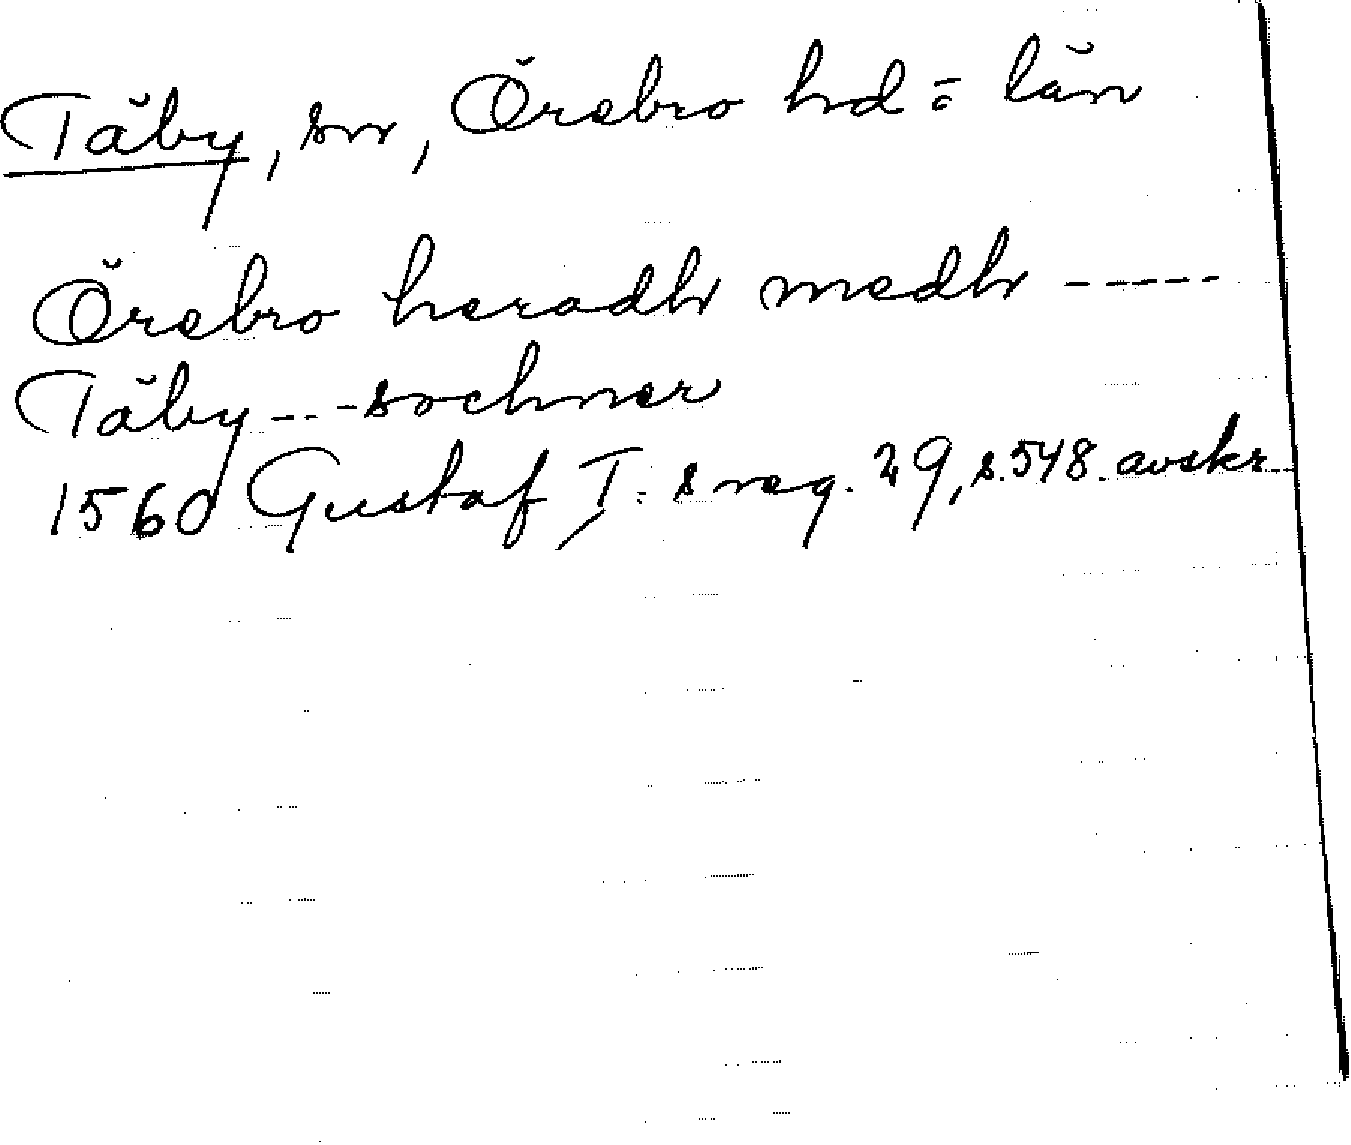 Täby, sn, Örebro hd = län
Örebro heradh medh -----
Täby --- sochner
1560 Gustaf I:s reg. 29, s. 548. avskr.